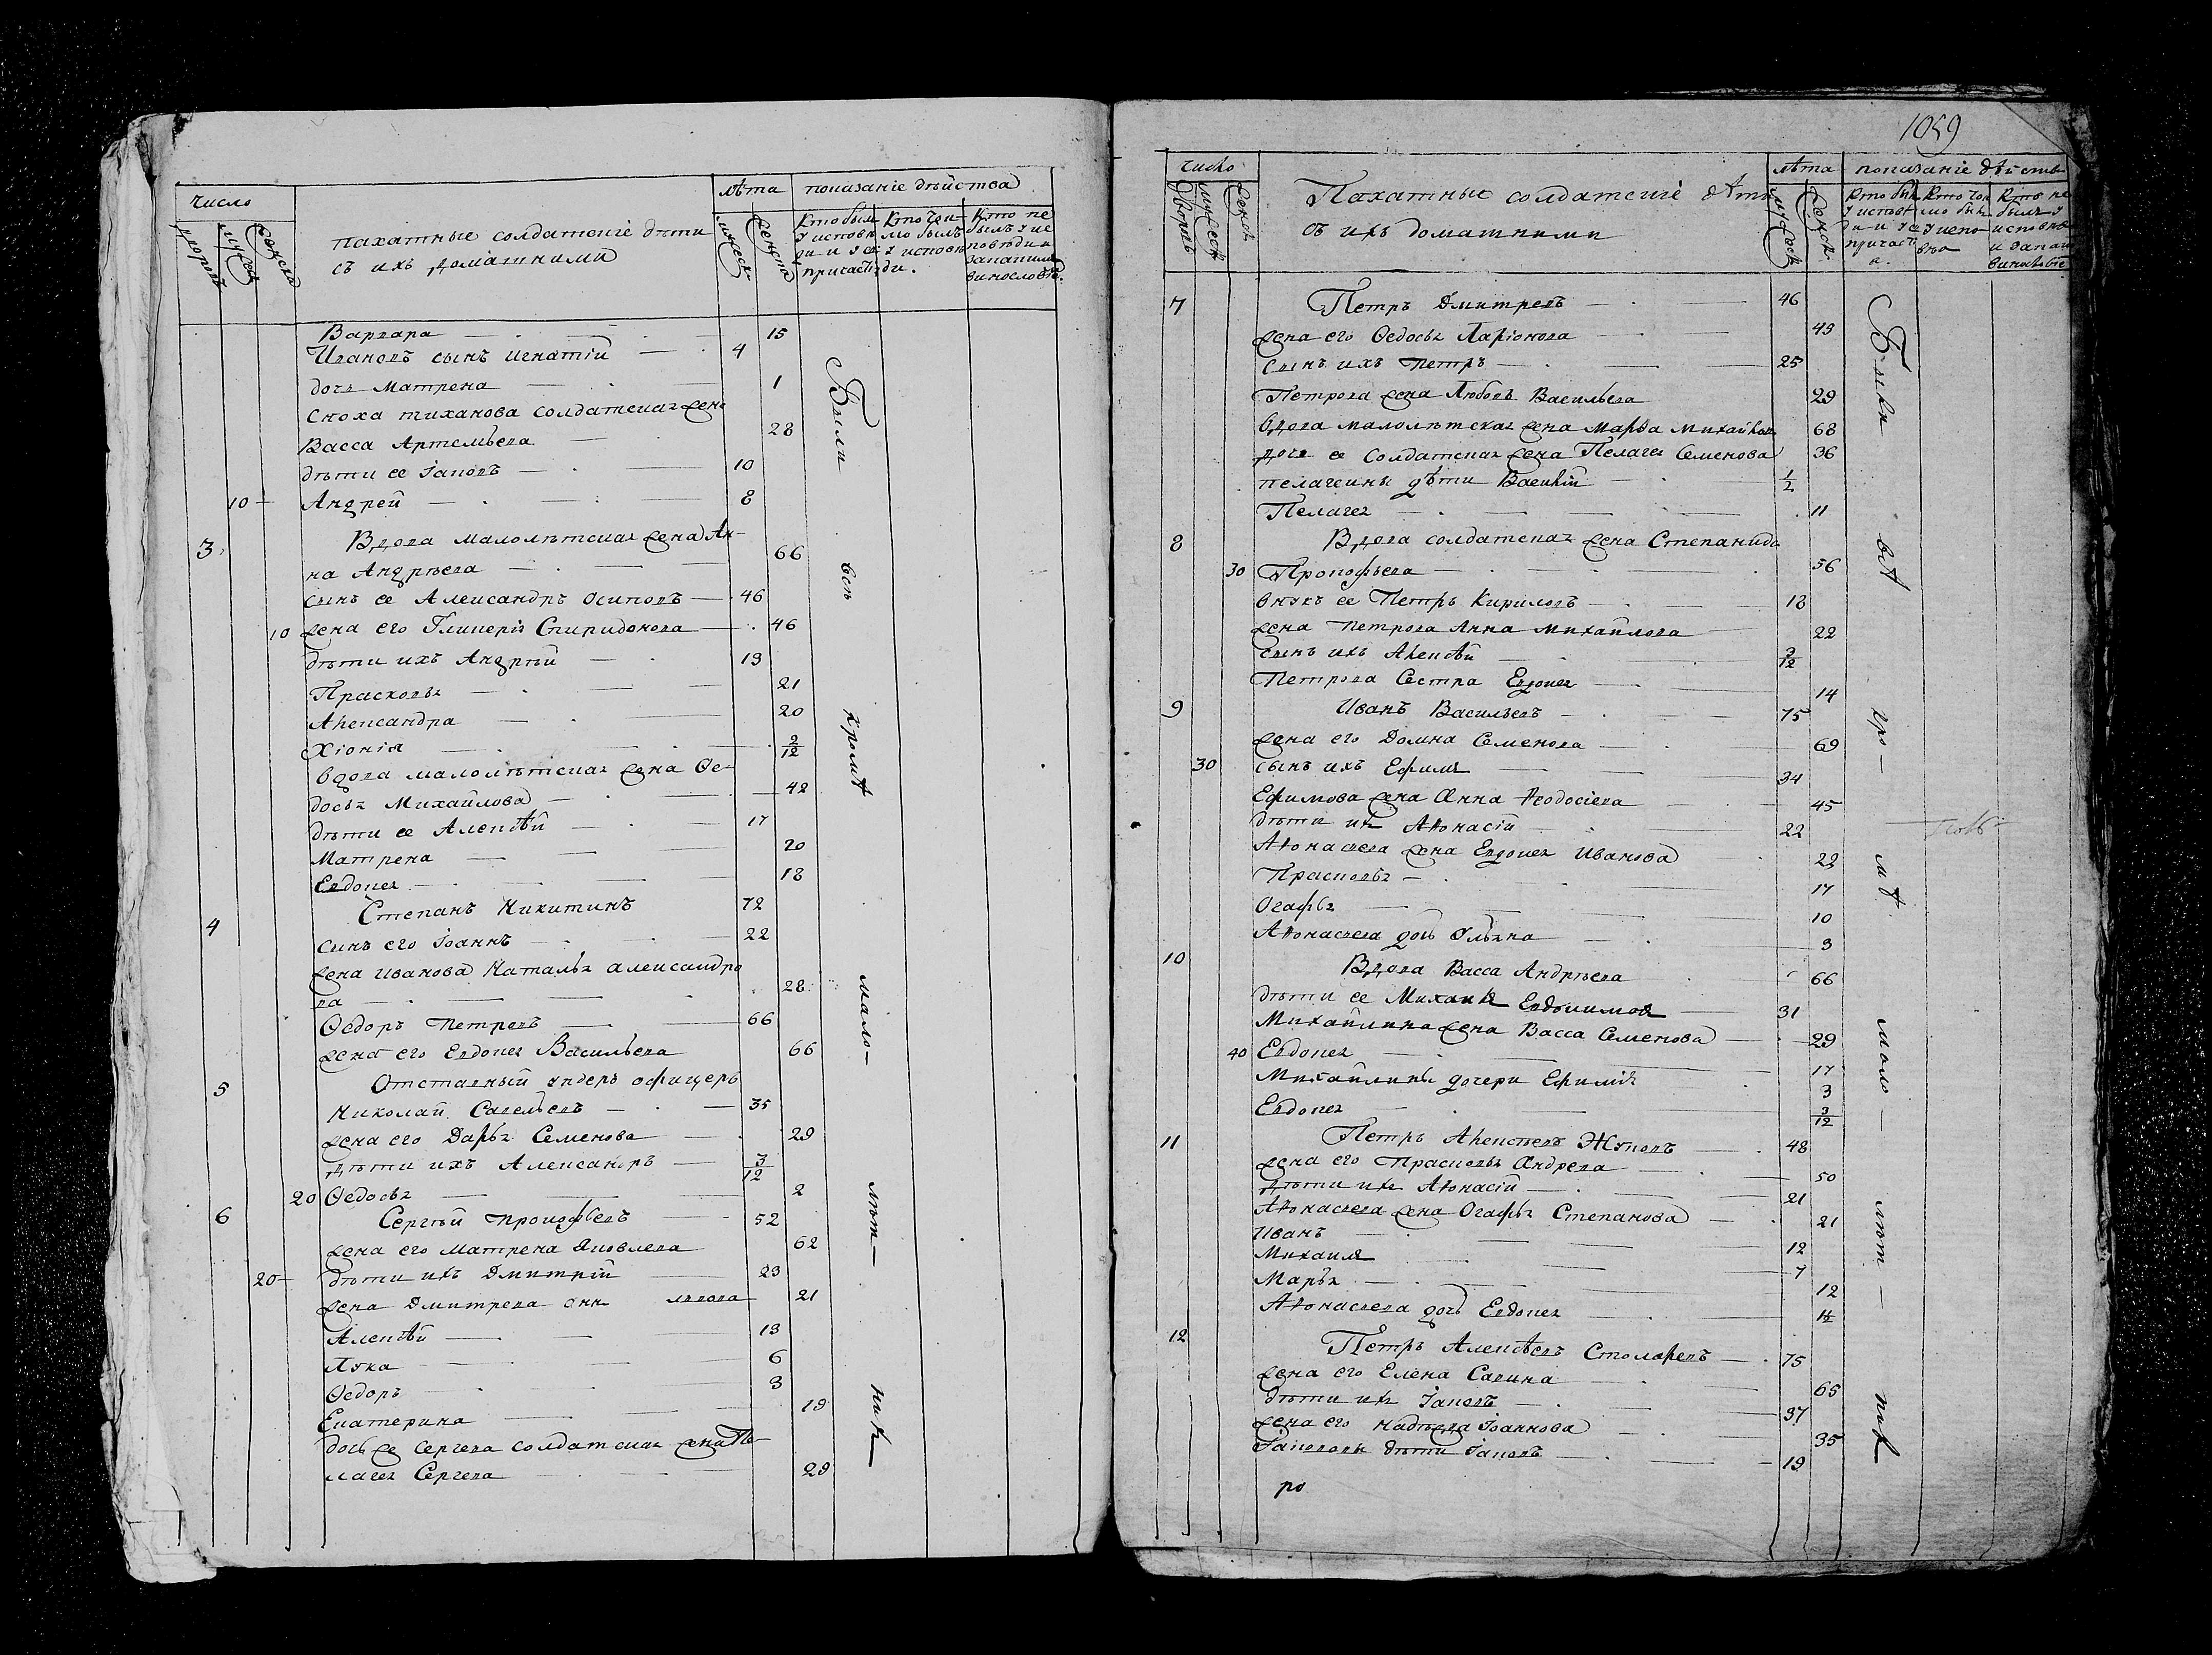 число
лѣта показанiе дѣйства
дворовъ
мужеск
женска
пахатные солдатскiе дѣти
съ ихъ домашними
мужеск
женска
кто былъ
у исповѣ
ди и у с
причаст
кто тол
мо былъ
у исповѣ
ди.
кто не
былъ у ис
повѣди и
за каким
винословiе.
Варвара 15
Ивановъ сынъ Игнатiй 4
дочь Матрена 1
Сноха тиханова солдатская жена
Васса Артемьева 28
дѣти ее Iаковъ 10
10 Андрей 8
3 Вдова малолѣтская жена Ан-
на Андрѣева 66
сынъ ее Александръ Осиповъ 46
10 жена его Гликерiя Спиридонова 46
дѣти ихъ Андрѣй 19
Прасковья 21
Александра 20
Хiонiя 2/12
вдова малолѣтская жена Ѳе-
досья Михайлова 42
дѣти ее Алексѣй 17
Матрена 20
Евдокея 18
4 Степанъ Никитинъ 72
сынъ его Iоаннъ 22
жена Иванова Наталья александро
ва 28
Ѳедоръ Петревъ 66
жена его Евдокея Васильева 66
5 Отставный ундеръ офицеръ
Николай Савельевъ 35
жена его Дарья Семенова 29
дѣти ихъ Александръ 3/12
20 Ѳедосья 2
6 Сергѣй Прокофьевъ 52
жена его Матрена Яковлева 62
20 дѣти ихъ Дмитрiй 23
жена Дмитрева Анн львова 21
Алексѣй 13
Лука 6
Ѳедоръ 3
Екатерина 19
дочь же Сергева солдатская жена Пе-
лагея Сергева 29
Были всѣ кромѣ мало-лѣт-нихъ
1059
число
лѣта показанiе дѣйств
дворовъ
мужеск
женск
Пахатные солдатскiе дѣти
съ ихъ домашними
мужеск
женск
кто был
у исповѣ
ди и у с
причаст
а.
кто тол
мо был
у испо
вѣа
кто не
былъ у
исповѣ
и за как
винословiе
7 Петръ Дмитревъ 46
жена его Ѳедосья Ларiонова 49
сынъ ихъ Петръ 25
Петрова жена Любовь Васильева 29
вдова малолѣтская жена Марѳа Михайлова 68
дочь ее солдатская жена Пелагея Семенова 36
пелагеины дѣти Василiй 1/2
Пелагея 11
8 Вдова солдатская жена Степанида
30 Прокофьева 56
внукъ ее Петръ Кириловъ 18
жена Петрова Анна Михайлова 22
сынъ ихъ Алексѣй 3/12
Петрова Сестра Евдокея 14
9 Иванъ Васильевъ 75
жена его Домна Семенова 69
30 сынъ ихъ Ефимъ 34
Ефимова жена Анна Ѳеодосiева 45
дѣти ихъ Аѳонасiй 22
Аѳонасьева жена Евдокея Иванова 22
Прасковья 17
Огафья 10
Аѳонасьева дочь Ульяна 3
10 Вдова Васса Андрѣева 66
дѣти ее Михаилъ Евдокимовъ 31
Михайлина жена Васса Семенова 29
40 Евдокея 17
Михайлины дочери Ефимiя 3
Евдокея 3/12
11 Петръ Алексѣевъ Жуковъ 48
жена его Прасковья Андрева 50
дѣти ихъ Аѳонасiй 21
Аѳонасьева жена Огафья Степанова 21
Иванъ 12
Михаилъ 7
Марья 12
Аѳонасьева дочь Евдокея
12 Петръ Алексѣевъ Столяревъ 75
жена его Елена Савина 65
дѣти ихъ Iаковъ 37
жена его Надѣжда Iоаннова 35
Iаковлевы дѣти Iаковъ 19
ро
Были всѣ кро-мѣ мало-лѣт-нихъ